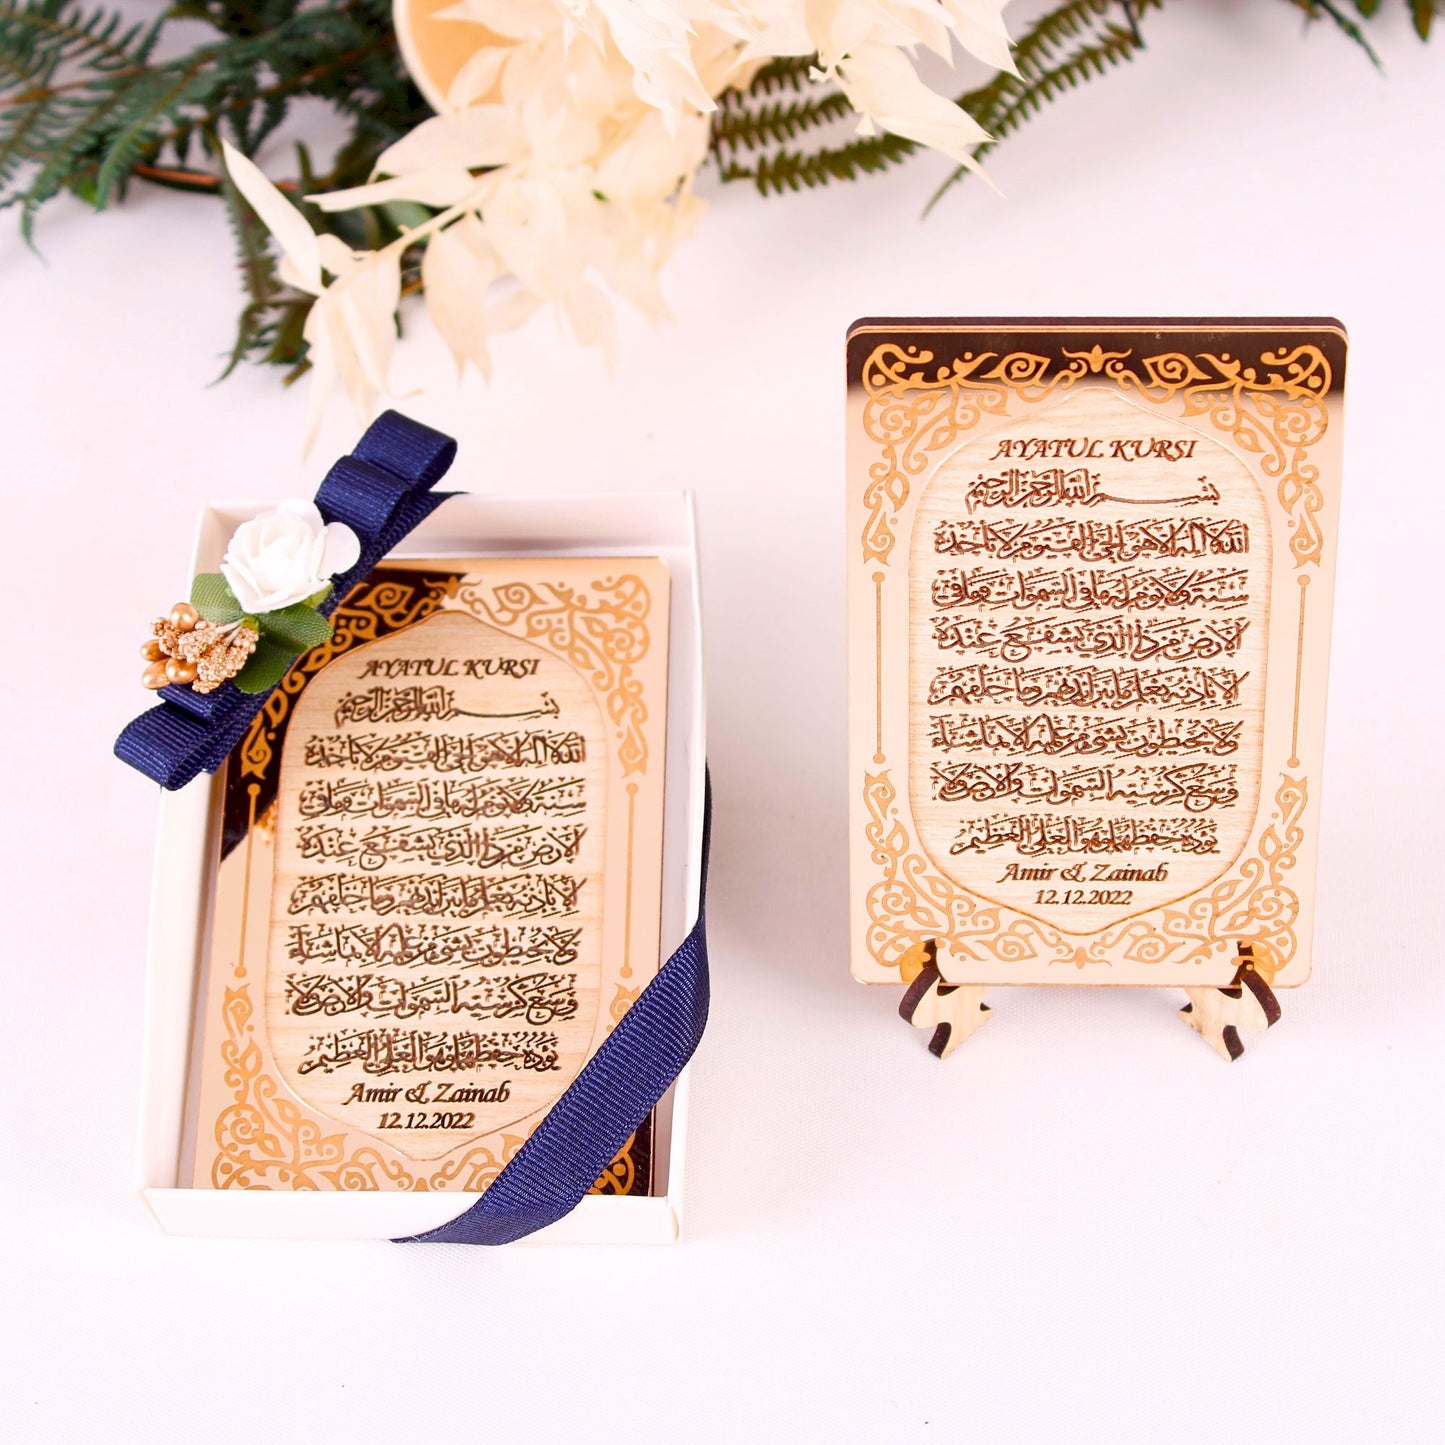 AYATUL KURSI
بسم الله الرحمن الرحيم
الله لا اله الا هو الحي القيوم لا تاخذه
سنة ولا نوم له ما في السموات وما في
الارض من ذا الذي يشفع عنده
الا باذنه يعلم ما بين ايديهم وما خلفهم
ولا يحيطون بشيء من علمه الا بما شاء
وسع كرسيه السموات والارض ولا
يؤده حفظهما وهو العلي العظيم
Amir & Zainab
12.12.2022
AYATUL KURSI
بسم الله الرحمن الرحيم
الله لا اله الا هو الحي القيوم لا تاخذه
سنة ولا نوم له ما في السموات وما في
الارض من ذا الذي يشفع عنده
الا باذنه يعلم ما بين ايديهم وما خلفهم
ولا يحيطون بشيء من علمه الا بما شاء
وسع كرسيه السموات والارض ولا
يؤده حفظهما وهو العلي العظيم
Amir & Zainab
12.12.2022